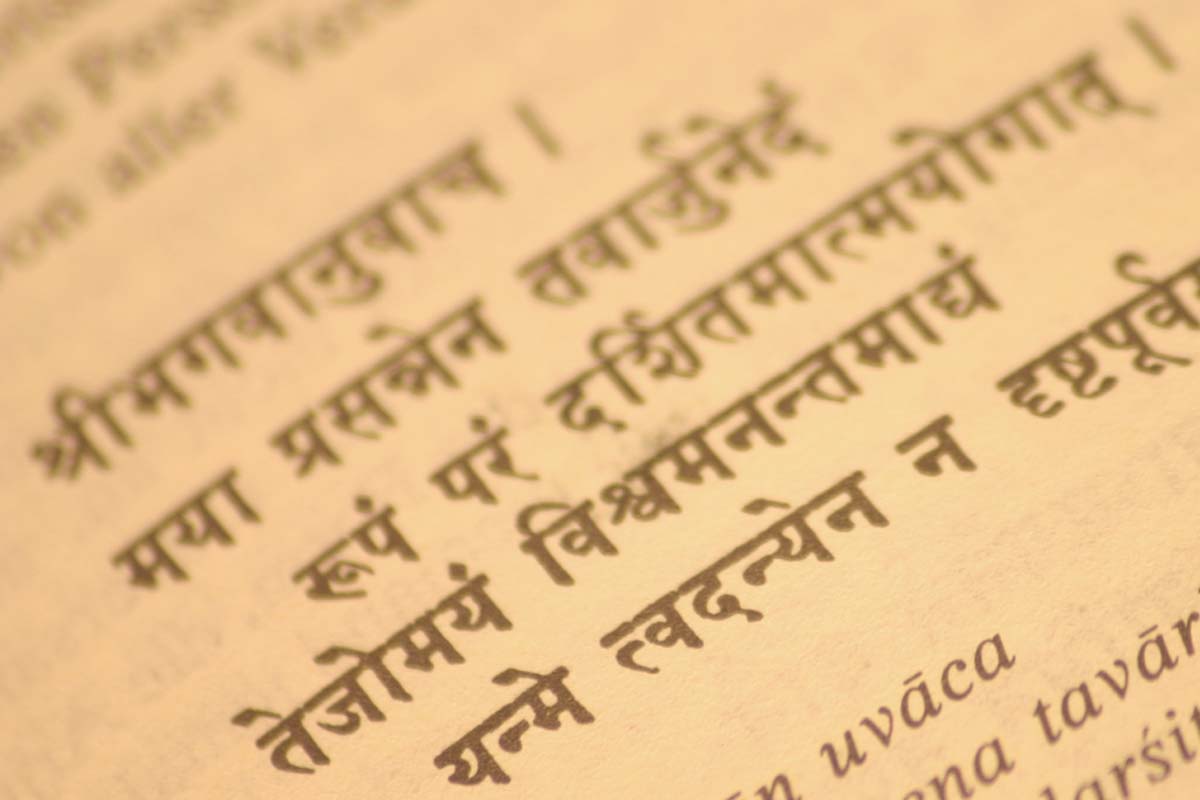 on aller
श्रीभगवानुवाच ।
मया प्रसन्नेन तवार्जुनेदं
रूपं परं दर्शितमात्मयोगात् ।
तेजोमयं विश्वमनन्तमाद्यं
यन्मे त्वदन्येन न दृष्टपूर्वम
uvāca
ena tavār
darśit